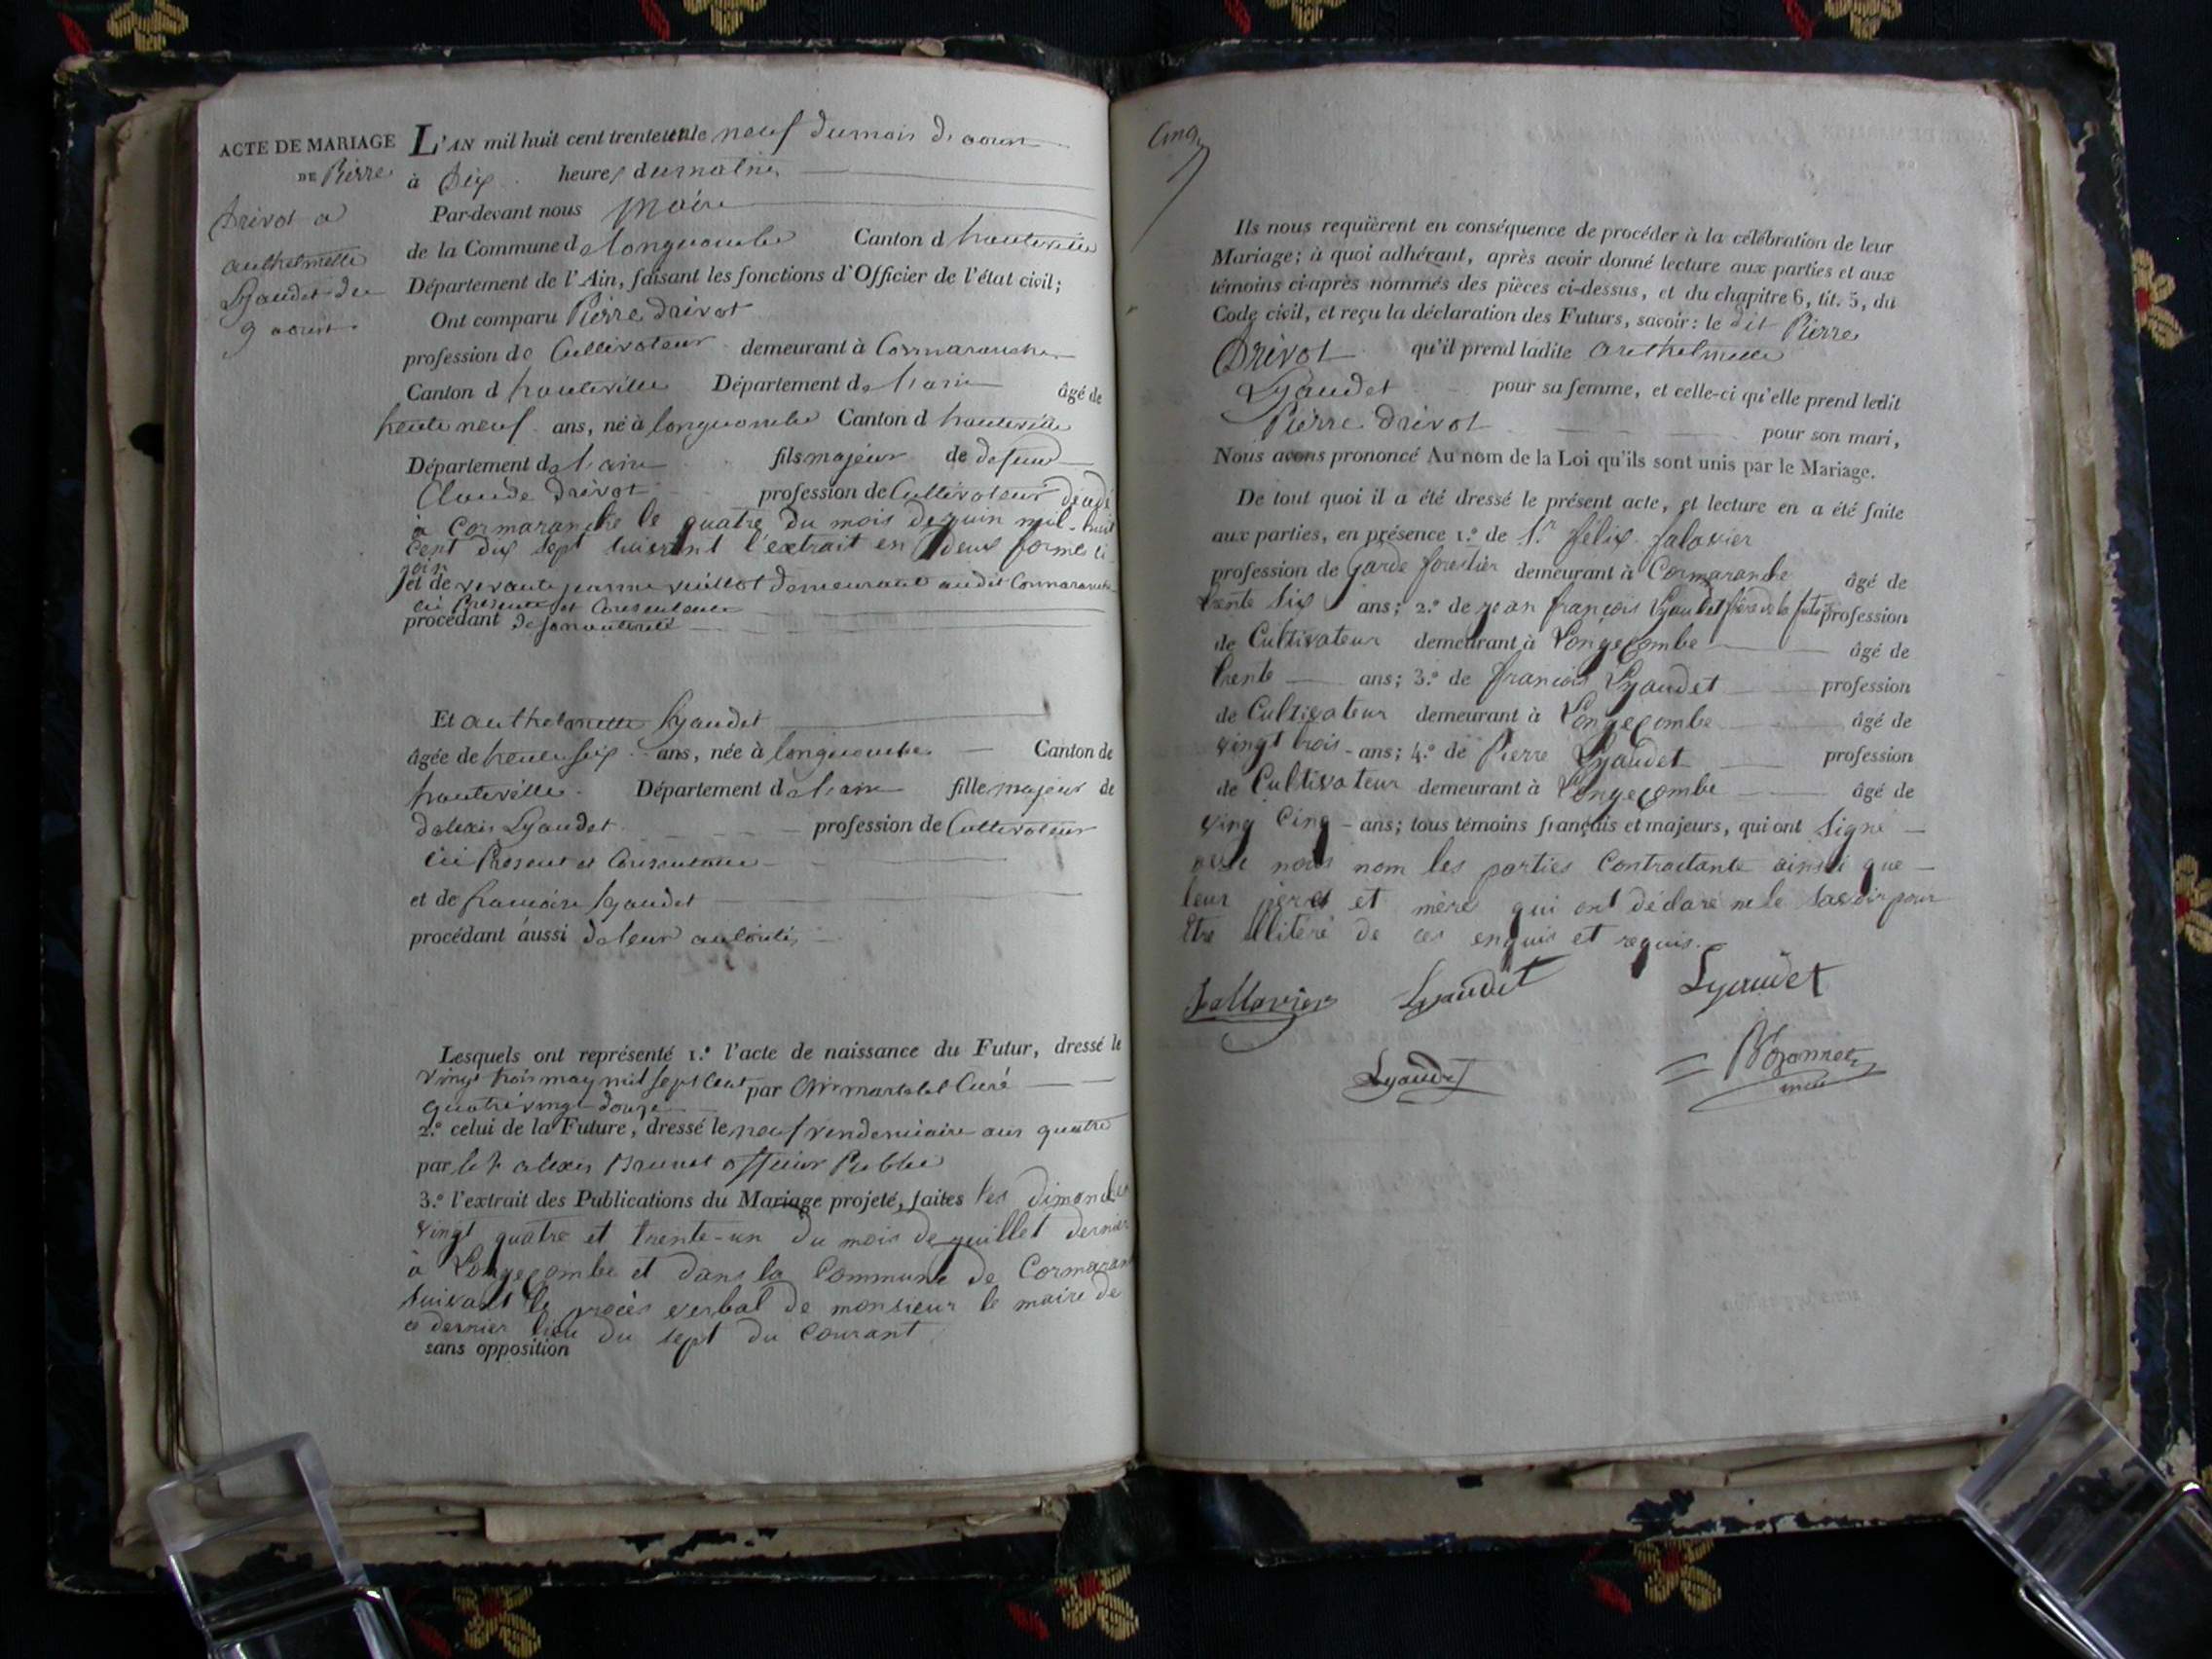 ACTE DE MARIAGE
DE Pierre
Drivot a
authelmette
Lyaudet du
9 aoust
L'AN mil huit cent trente un le neuf du mois de aoust
à dix heures du matin
Par-devant nous Maire
de la Commune de longecombe Canton d hauteville
Département de l'Ain, faisant les fonctions d'Officier de l'état civil;
Ont comparu Pierre Drivot
profession de Cultivateur demeurant à Cormaranche
Canton d hauteville Département de l'ain âgé de
trente neuf ans, né à longecombe Canton d hauteville
Département de l'ain fils majeur de defunt
Claude Drivot profession de Cultivateur décédé
à Cormaranche le quatre du mois de juin mil-huit
cent dix sept suivant l'extrait en deux forme ci
join
et de vivante jeanne veuillot demeurant audit Cormaranche
ici Presente et Consentente
procédant de son autorité
Et authelmette Lyaudet
âgée de trente six ans, née à longecombe Canton de
hauteville Département de l'ain fille majeur de
d'alexis Lyaudet profession de Cultivateur
ici Present et Consentant
et de françoise Lyaudet
procédant aussi de leur autorité
Lesquels ont représenté 1.º l'acte de naissance du Futur, dressé le
vingt trois may mil sept Cent par Mr martelet Curé
quatre vingt douze
2.º celui de la Future, dressé le neuf vendemiaire ans quatre
par le Sr alexis Brunet officier Public
3.º l'extrait des Publications du Mariage projeté, faites les dimanches
vingt quatre et trente-un du mois de juillet dernier
à Longecombe et dans la Commune de Cormaran
suivant le procès verbal de monsieur le maire de
ce dernier lieu du sept du Courant
sans opposition
Cinq
Ils nous requièrent en conséquence de procéder à la célébration de leur
Mariage; à quoi adhérant, après avoir donné lecture aux parties et aux
témoins ci-après nommés des pièces ci-dessus, et du chapitre 6, tit. 5, du
Code civil, et reçu la déclaration des Futurs, savoir: le dit Pierre
Drivot qu'il prend ladite authelmette
Lyaudet pour sa femme, et celle-ci qu'elle prend ledit
Pierre Drivot pour son mari,
Nous avons prononcé Au nom de la Loi qu'ils sont unis par le Mariage.
De tout quoi il a été dressé le présent acte, et lecture en a été faite
aux parties, en présence 1.º de Sr félix falavier
profession de Garde forestier demeurant à Cormaranche âgé de
trente six ans; 2.º de jean françois Lyaudet frère de la future profession
de Cultivateur demeurant à Longecombe âgé de
trente ans; 3.º de françois Lyaudet profession
de Cultivateur demeurant à Longecombe âgé de
vingt trois ans; 4.º de Pierre Lyaudet profession
de Cultivateur demeurant à Longecombe âgé de
ving Cinq ans; tous témoins français et majeurs, qui ont signé
avec nous nom les parties Contractante ainsi que
leur père et mère qui ont déclaré ne le savoir pour
être illitéré de ces enquis et requis.
Lyaudet Lyaudet
Lyaudet